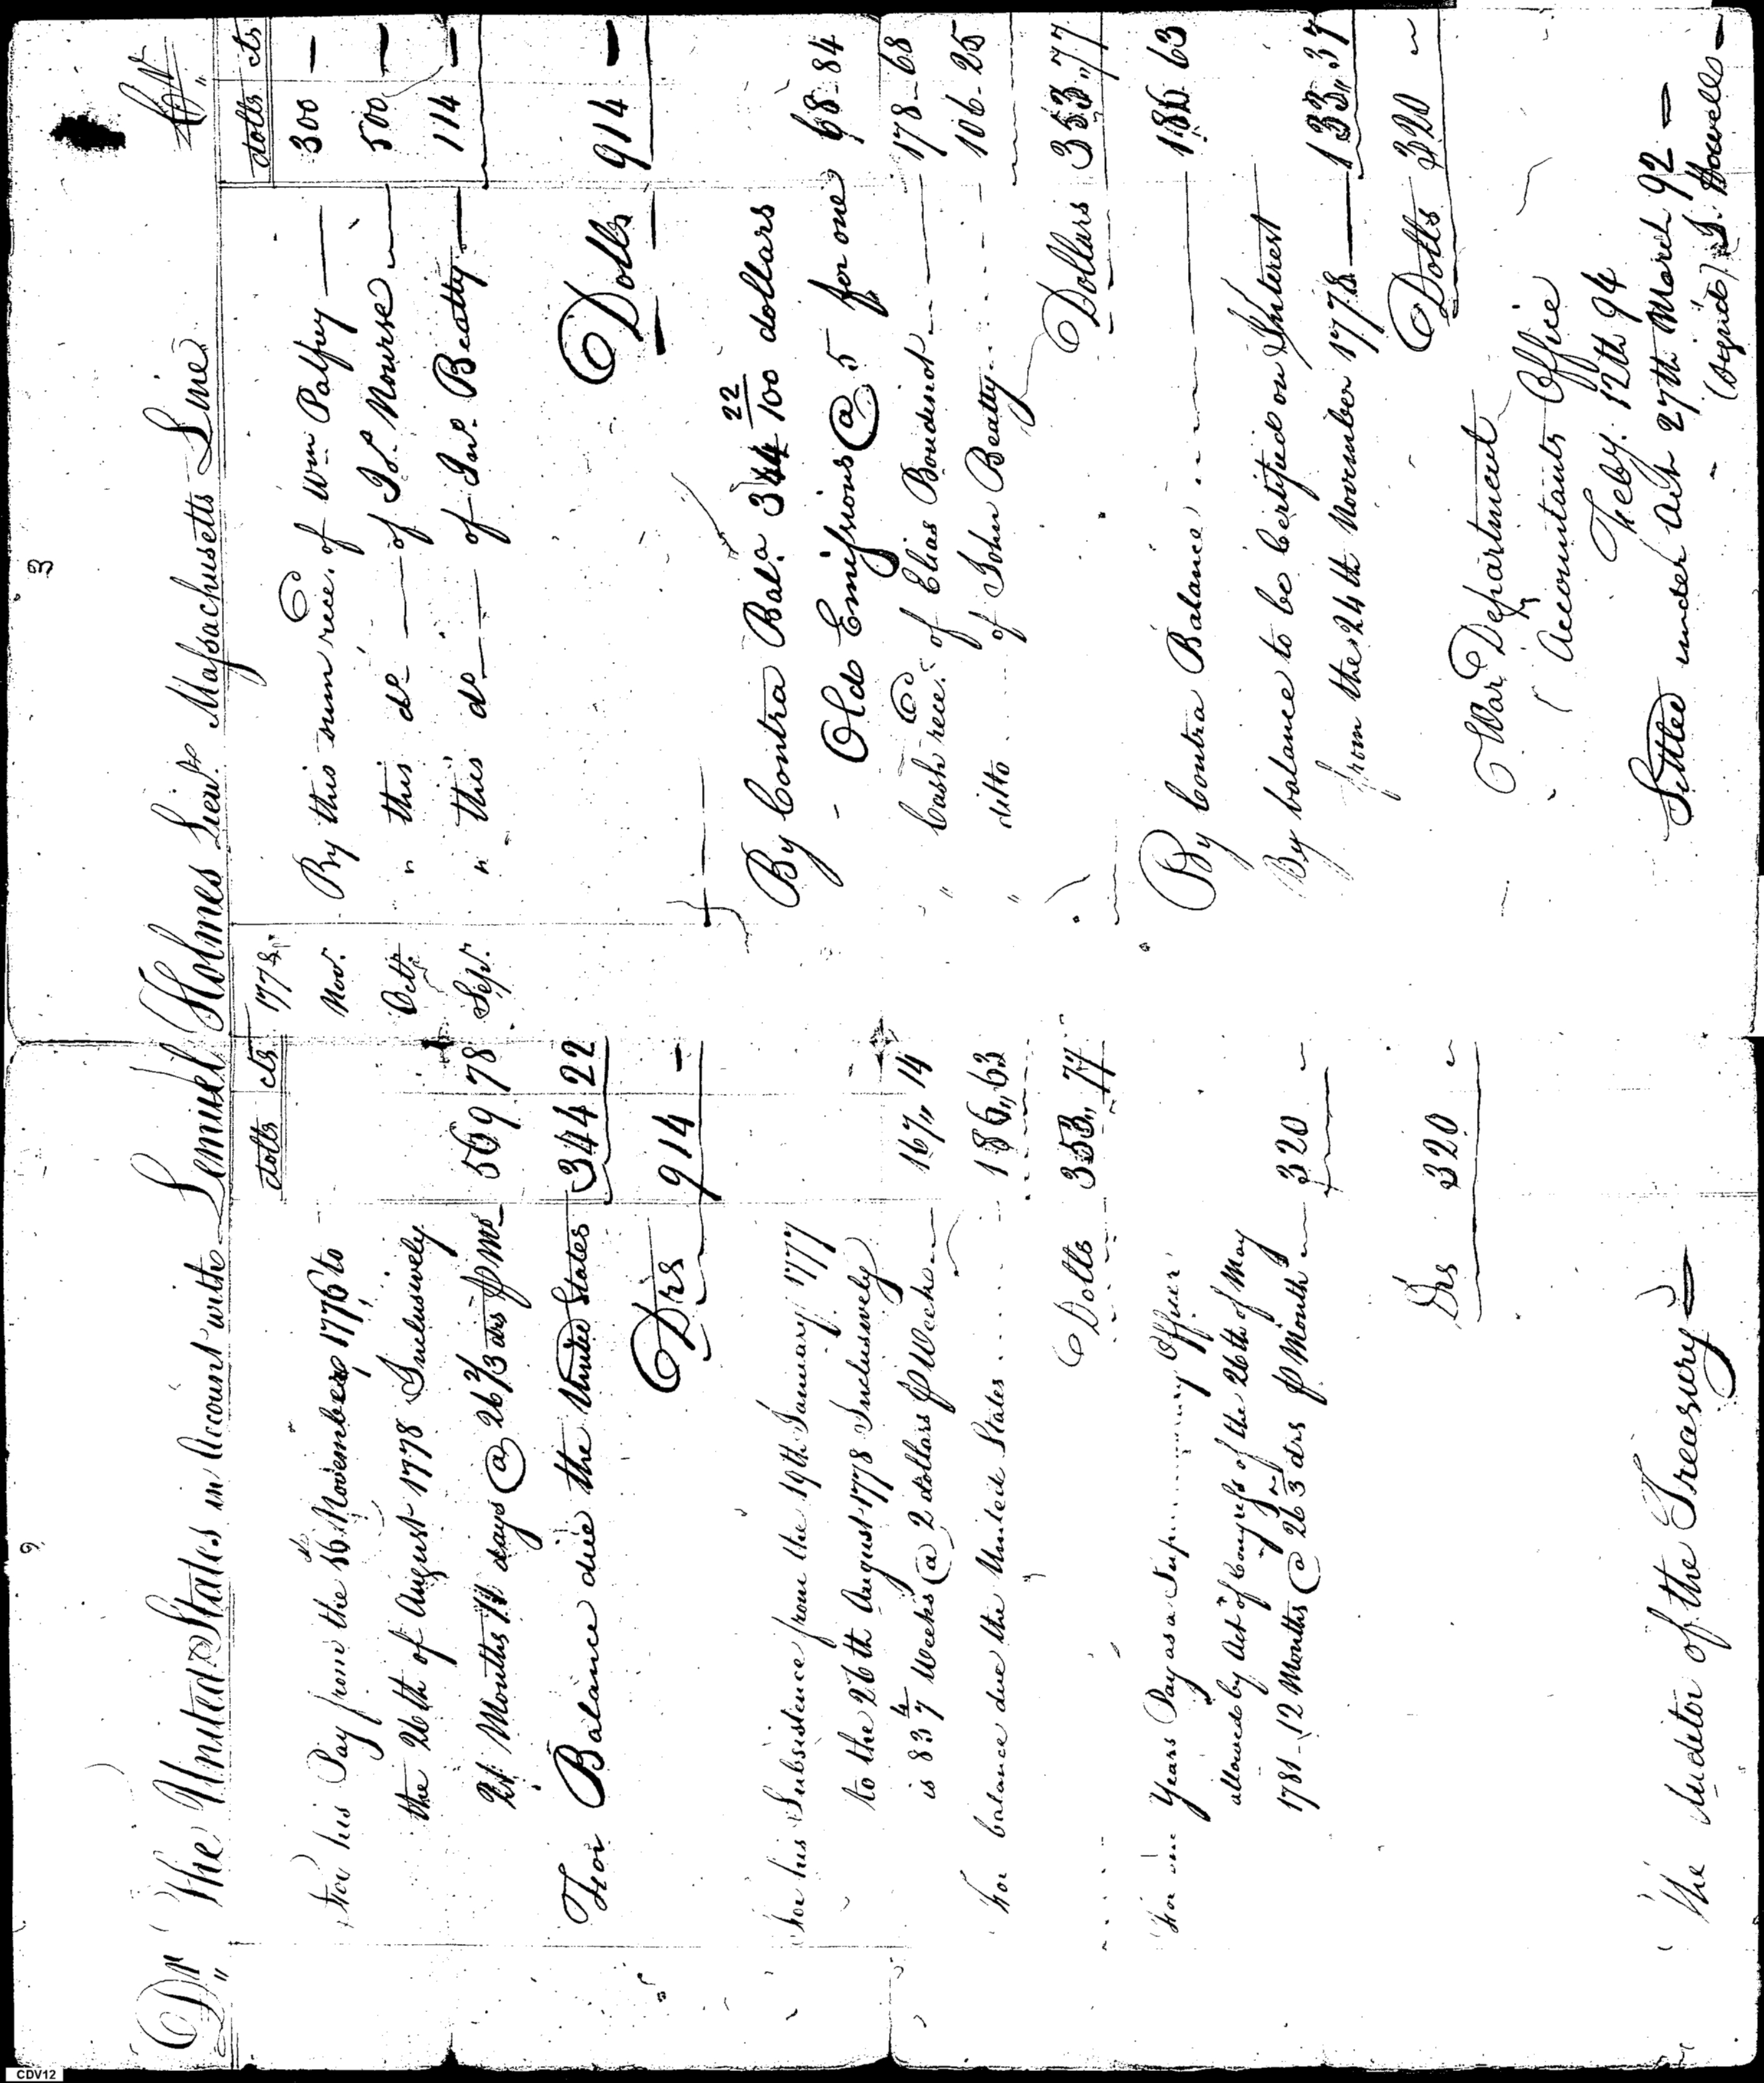 9
3
Dr The United States in Account with Lemuel Holmes Lieut. Massachusetts Line Cr
dolls cts
For his Pay from the 16 November 1776 to
the 26th of August 1778 Inclusively
21 Months 11 days @ 26 2/3 drs P Mo 569 78
For Balance due the United States 344 22
Drs 914 -
For his Subsistence from the 19th January 1777
to the 26th August 1778 Inclusively
is 83 4/7 Weeks @ 2 dollars P Week 167,, 14
For balance due the United States 186,, 63
Dolls 353,, 77
For one Years Pay as a Officer
allowed by Act of Congress of the 26th of May
1781 - 12 Months @ 26 2/3 drs P Month 320
Drs 320
The Auditor of the Treasury
1778 dolls cts
Nov. By this sum rece.d of Wm Palfrey 300 -
Octr " this do of Jos. Nourse 500 -
Sepr. " this do of Jno. Beatty 114 -
Dolls 914 -
By Contra Bal.a 344 22/100 dollars
Old Emissions @ 5 for one 68 - 84
" Cash rece.d of Elias Boudinot 178 - 68
" ditto of John Beatty 106 - 25
Dollars 353,, 77
By Contra Balance 186 63
By balance to be Certified on Interest
from the 24th November 1778 133,, 37
Dolls 320
War Department
Accountants Office
Feby. 12th 94
Settled under Act 27th March 92
(signed) J. Howell
CDV12